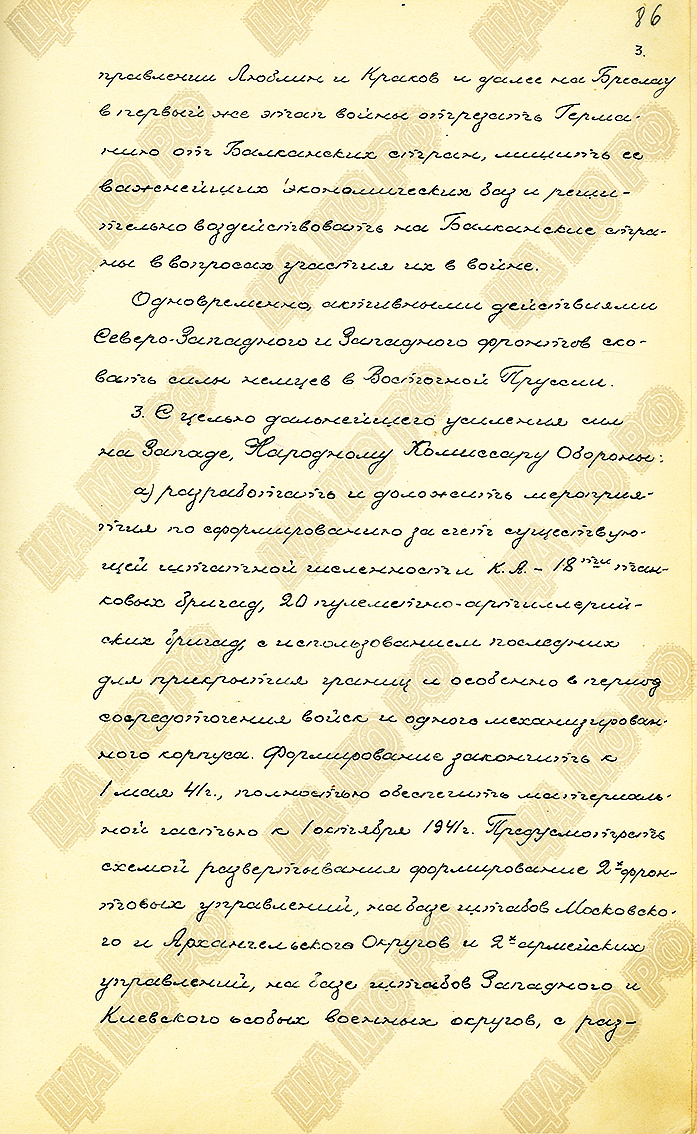 86
3.
правлении Люблин и Краков и далее на Бреслау
в первый же этап войны отрезать Герма-
нию от Балканских стран, лишить ее
важнейших экономических баз и реши-
тельно воздействовать на Балканские стра-
ны в вопросах участия их в войне.
Одновременно, активными действиями
Северо-Западного и Западного фронтов ско-
вать силы немцев в Восточной Пруссии.
3. С целью дальнейшего усиления сил
на Западе, Народному Комиссару Обороны:
а) разработать и доложить мероприя-
тия по сформированию за счет существую-
щей штатной численности К.А. – 18ти тан-
ковых бригад, 20 пулеметно-артиллерий-
ских бригад, с использованием последних
для прикрытия границ и особенно в период
сосредоточения войск и одного механизирован-
ного корпуса. Формирование закончить к
1 мая 41г., полностью обеспечить материаль-
ной частью к 1 октября 1941г. Предусмотреть
схемой развертывания формирование 2х фрон-
товых управлений, на базе штабов Московско-
го и Архангельского Округов и 2х армейских
управлений, на базе штабов Западного и
Киевского особых военных округов, с раз-
ЦА МО РФ